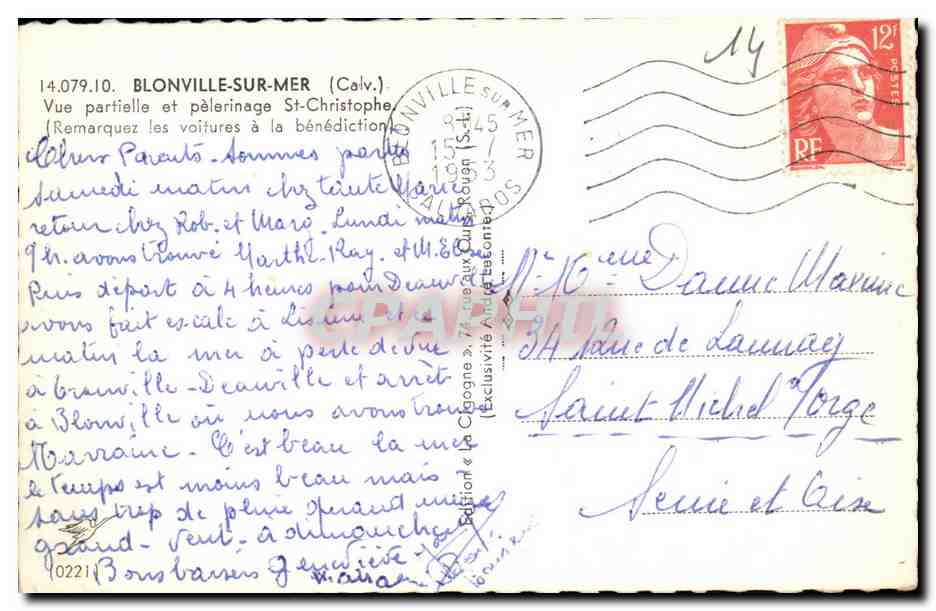 14
12F
POSTES
RF
14.079.10. BLONVILLE-SUR-MER (Calv.)
Vue partielle et pèlerinage St-Christophe.
(Remarquez les voitures à la bénédiction)
BLONVILLE SUR MER
8 45
15
1953
CALVADOS
Chers Parents - Sommes partis
samedi matin chez tante Marie
retour chez Rob. et Marg. Lundi matin
9 h. avons trouvé Marthe. Ray. et M.
Puis départ à 4 heures pour Deauville
avons fait escale à Lisieux et ce
matin la mer à perte de vue
à Trouville - Deauville et arrêt
à Blonville où nous avons trouvé
Marraine - C'est beau la mer
le temps est moins beau mais
sans trop de pluie durant
grand - vent - à dimanche
Bons baisers Geneviève
(0221)
Edition « La Cigogne », 74, rue aux Ours, Rouen (S.-I.)
(Exclusivité André Leconte)
CPARAMA
Mr Mme Danne Maxime
34 Rue de Launay
Saint Michel s/Orge
Seine et Oise